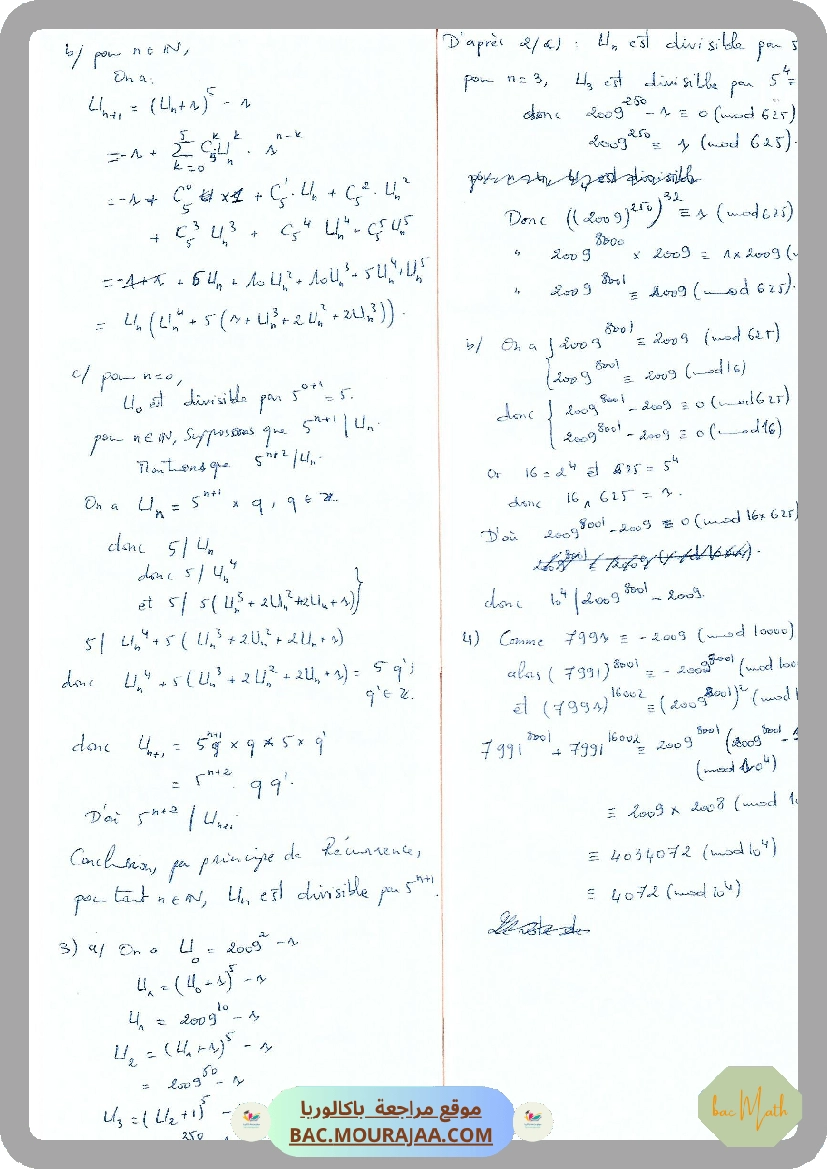 b/ pour n ∈ IN,
On a:
U_{n+1} = (U_n+1)^5 - 1
= -1 + Σ_{k=0}^{5} C_5^k U_n^k . 1^{n-k}
= -1 + C_5^0 x1 + C_5^1 . U_n + C_5^2 . U_n^2
+ C_5^3 U_n^3 + C_5^4 U_n^4 + C_5^5 U_n^5
= -1+1 + 5U_n + 10U_n^2 + 10U_n^3 + 5U_n^4 + U_n^5
= U_n (U_n^4 + 5(1 + U_n^3 + 2U_n^2 + 2U_n^3)).
c/ pour n=0,
U_0 est divisible par 5^{0+1} = 5.
pour n∈IN, Supposons que 5^{n+1} | U_n.
Montrons que 5^{n+2} | U_n.
On a U_n = 5^{n+1} x q, q ∈ Z.
donc 5 | U_n
donc 5 | U_n^4
et 5 | 5(U_n^3 + 2U_n^2 + 2U_n + 1)
5 | U_n^4 + 5(U_n^3 + 2U_n^2 + 2U_n + 1)
donc U_n^4 + 5(U_n^3 + 2U_n^2 + 2U_n + 1) = 5q';
q' ∈ Z.
donc U_{n+1} = 5^{n+1} x q x 5 x q'
= 5^{n+2} . qq'.
D'où 5^{n+2} | U_{n+1}
Conclusion, par principe de Récurrence,
pour tout n∈IN, U_n est divisible par 5^{n+1}.
3) a/ On a U_0 = 2009^2 - 1
U_1 = (U_0+1)^5 - 1
U_1 = 2009^{10} - 1
U_2 = (U_1+1)^5 - 1
= 2009^{50} - 1
U_3 = (U_2+1)^5 -
250
D'après 2/c) : U_n est divisible par 5
pour n=3, U_3 est divisible par 5^4 =
donc 2009^{250} - 1 ≡ 0 (mod 625)
2009^{250} ≡ 1 (mod 625).
Donc ((2009)^{250})^{32} ≡ 1 (mod 625)
" 2009^{8000} x 2009 ≡ 1x2009 (
" 2009^{8001} ≡ 2009 (mod 625).
b/ On a { 2009^{8001} ≡ 2009 (mod 625)
{ 2009^{8001} ≡ 2009 (mod 16)
donc { 2009^{8001} - 2009 ≡ 0 (mod 625)
{ 2009^{8001} - 2009 ≡ 0 (mod 16)
Or 16 = 2^4 et 625 = 5^4
donc 16 ∧ 625 = 1.
D'où 2009^{8001} - 2009 ≡ 0 (mod 16x625)
donc 10^4 | 2009^{8001} - 2009.
4) Comme 7991 ≡ -2009 (mod 10000)
alors (7991)^{8001} ≡ -2009^{8001} (mod 100
et (7991)^{16002} ≡ (2009^{8001})^2 (mod 1
7991^{8001} + 7991^{16002} ≡ 2009^{8001} (2009^{8001} - 1
(mod 10^4)
≡ 2009 x 2008 (mod 10
≡ 4034072 (mod 10^4)
≡ 4072 (mod 10^4)
موقع مراجعة باكالوريا
BAC.MOURAJAA.COM
bac Math